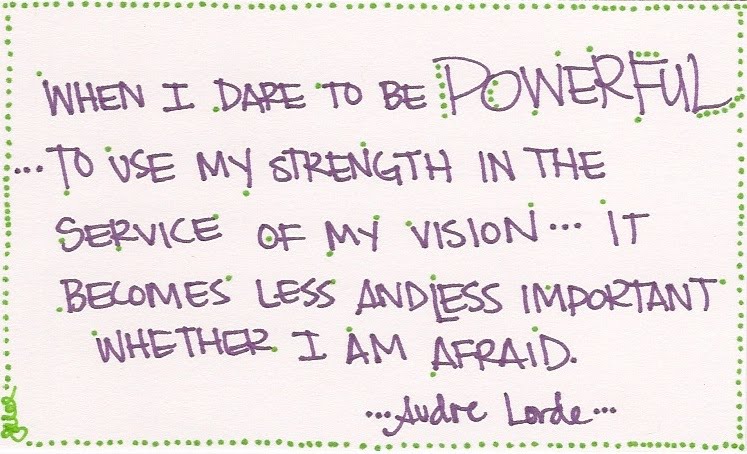 WHEN I DARE TO BE POWERFUL
...TO USE MY STRENGTH IN THE
SERVICE OF MY VISION... IT
BECOMES LESS AND LESS IMPORTANT
WHETHER I AM AFRAID.
...Audre Lorde...